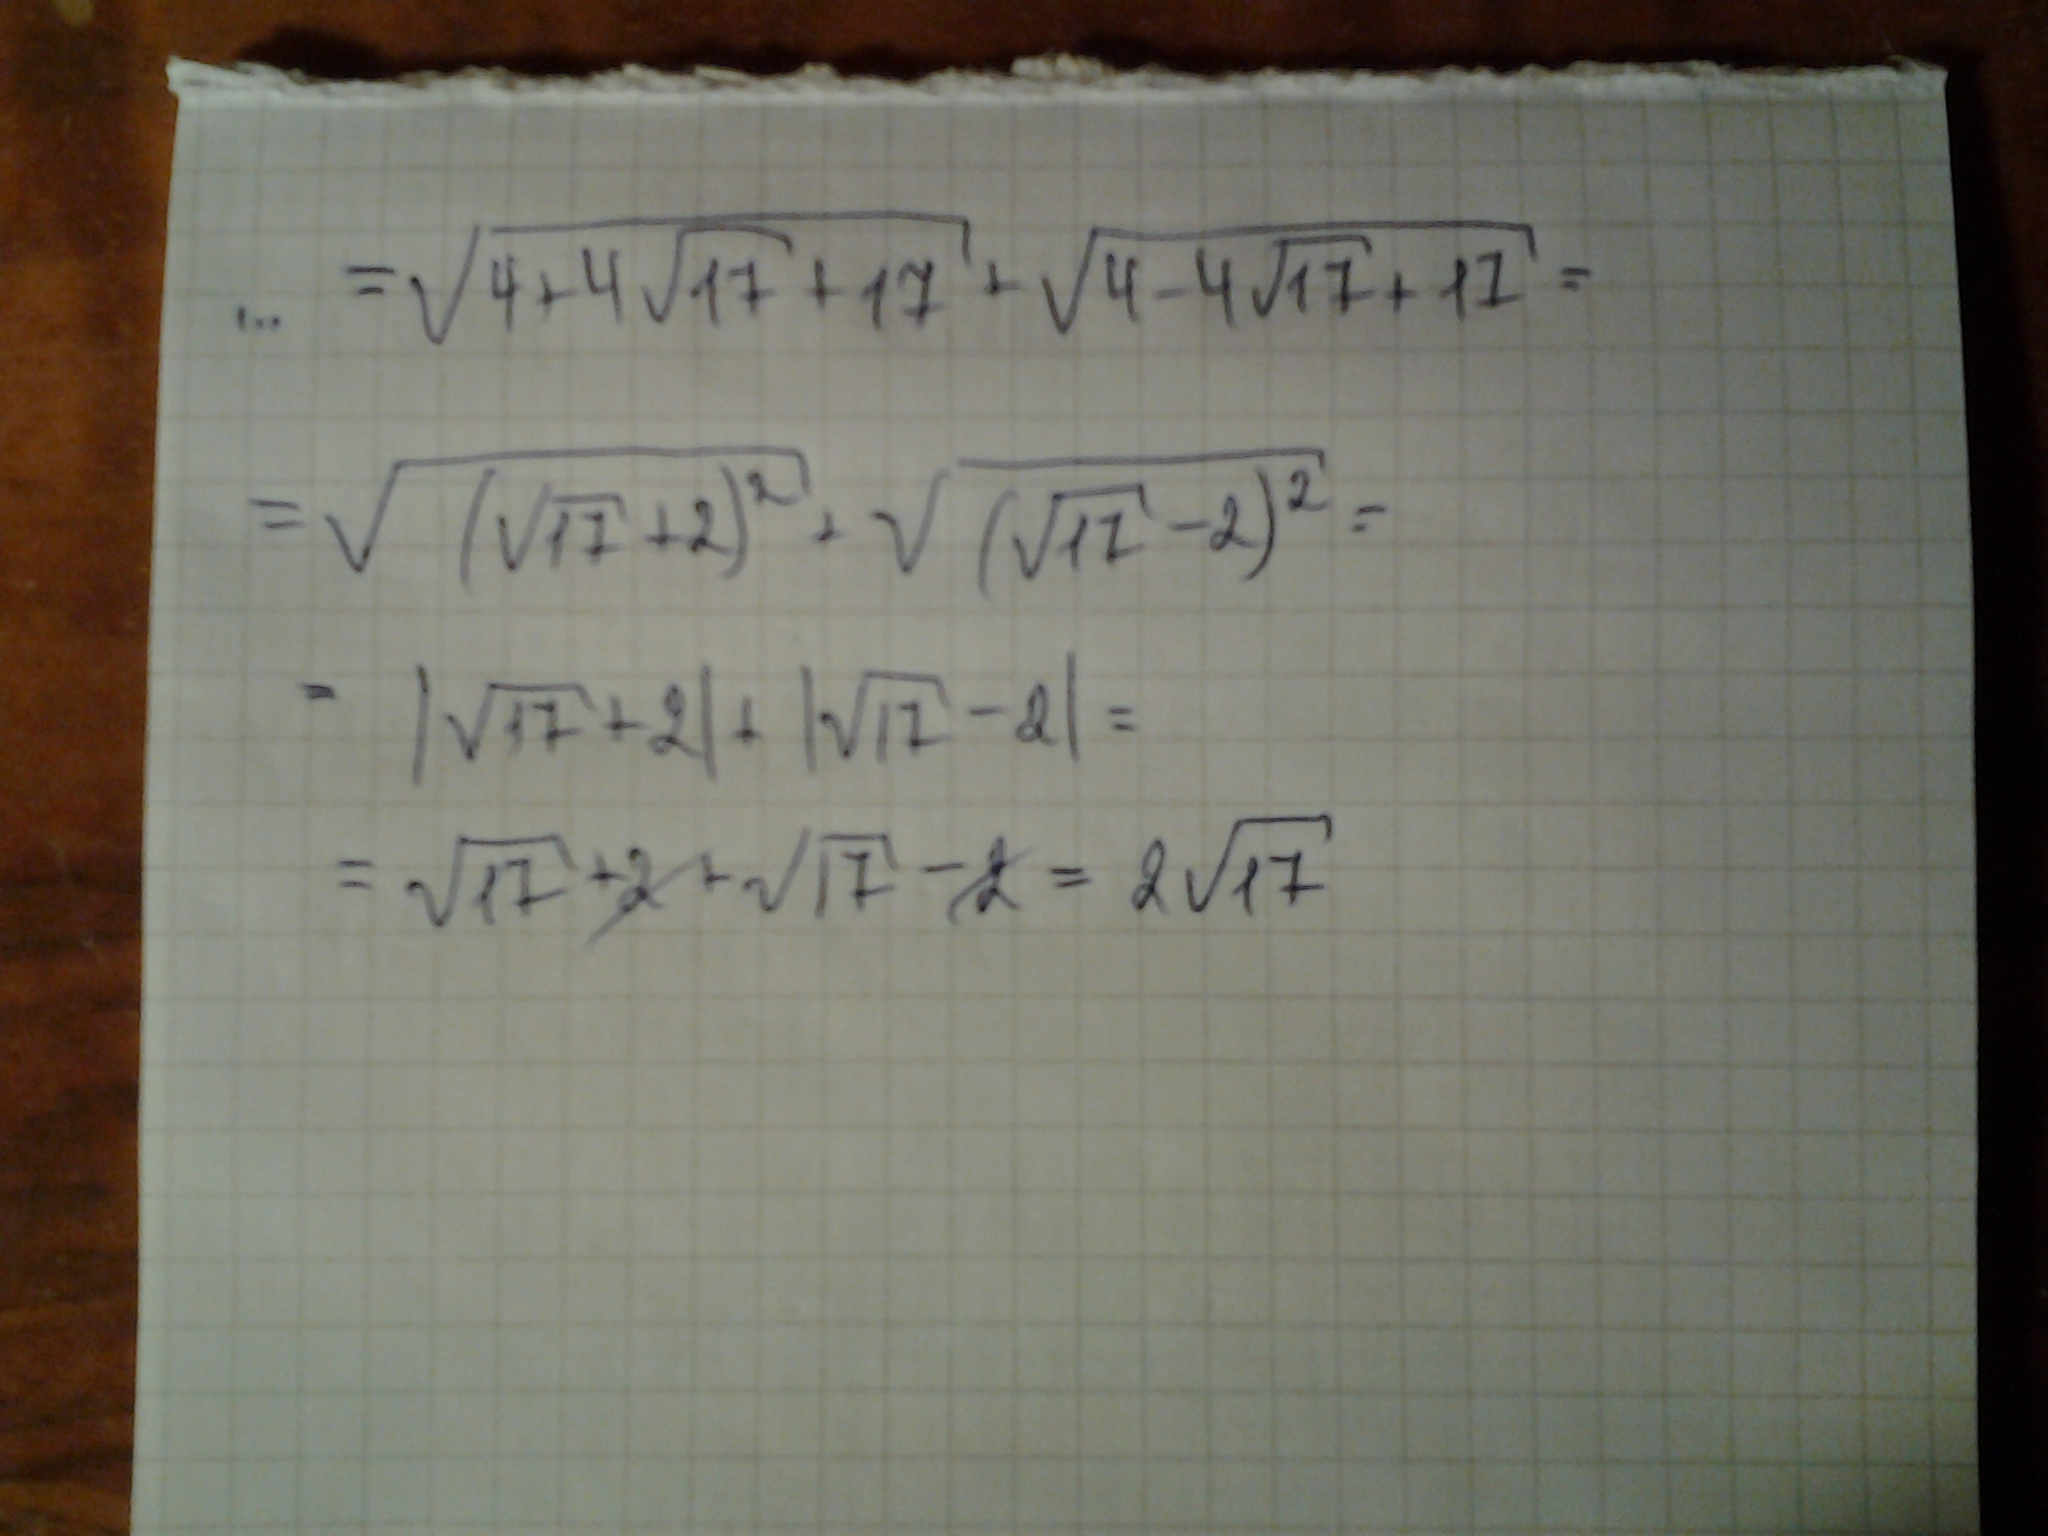 ... = √(4+4√17+17) + √(4-4√17+17) =
= √((√17+2)²) + √((√17-2)²) =
= |√17+2| + |√17-2| =
= √17+2+√17-2 = 2√17